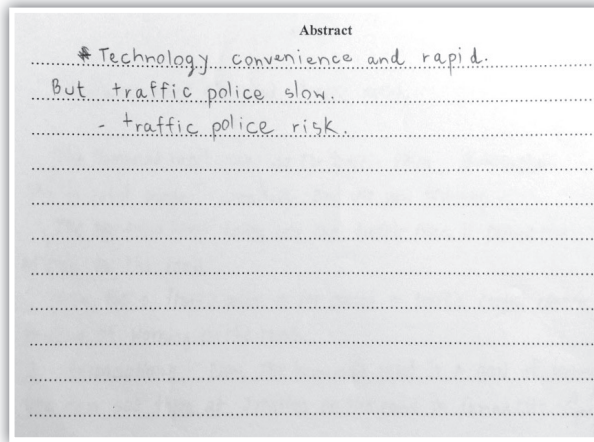 Abstract
* Technology convenience and rapid.
But traffic police slow.
- traffic police risk.